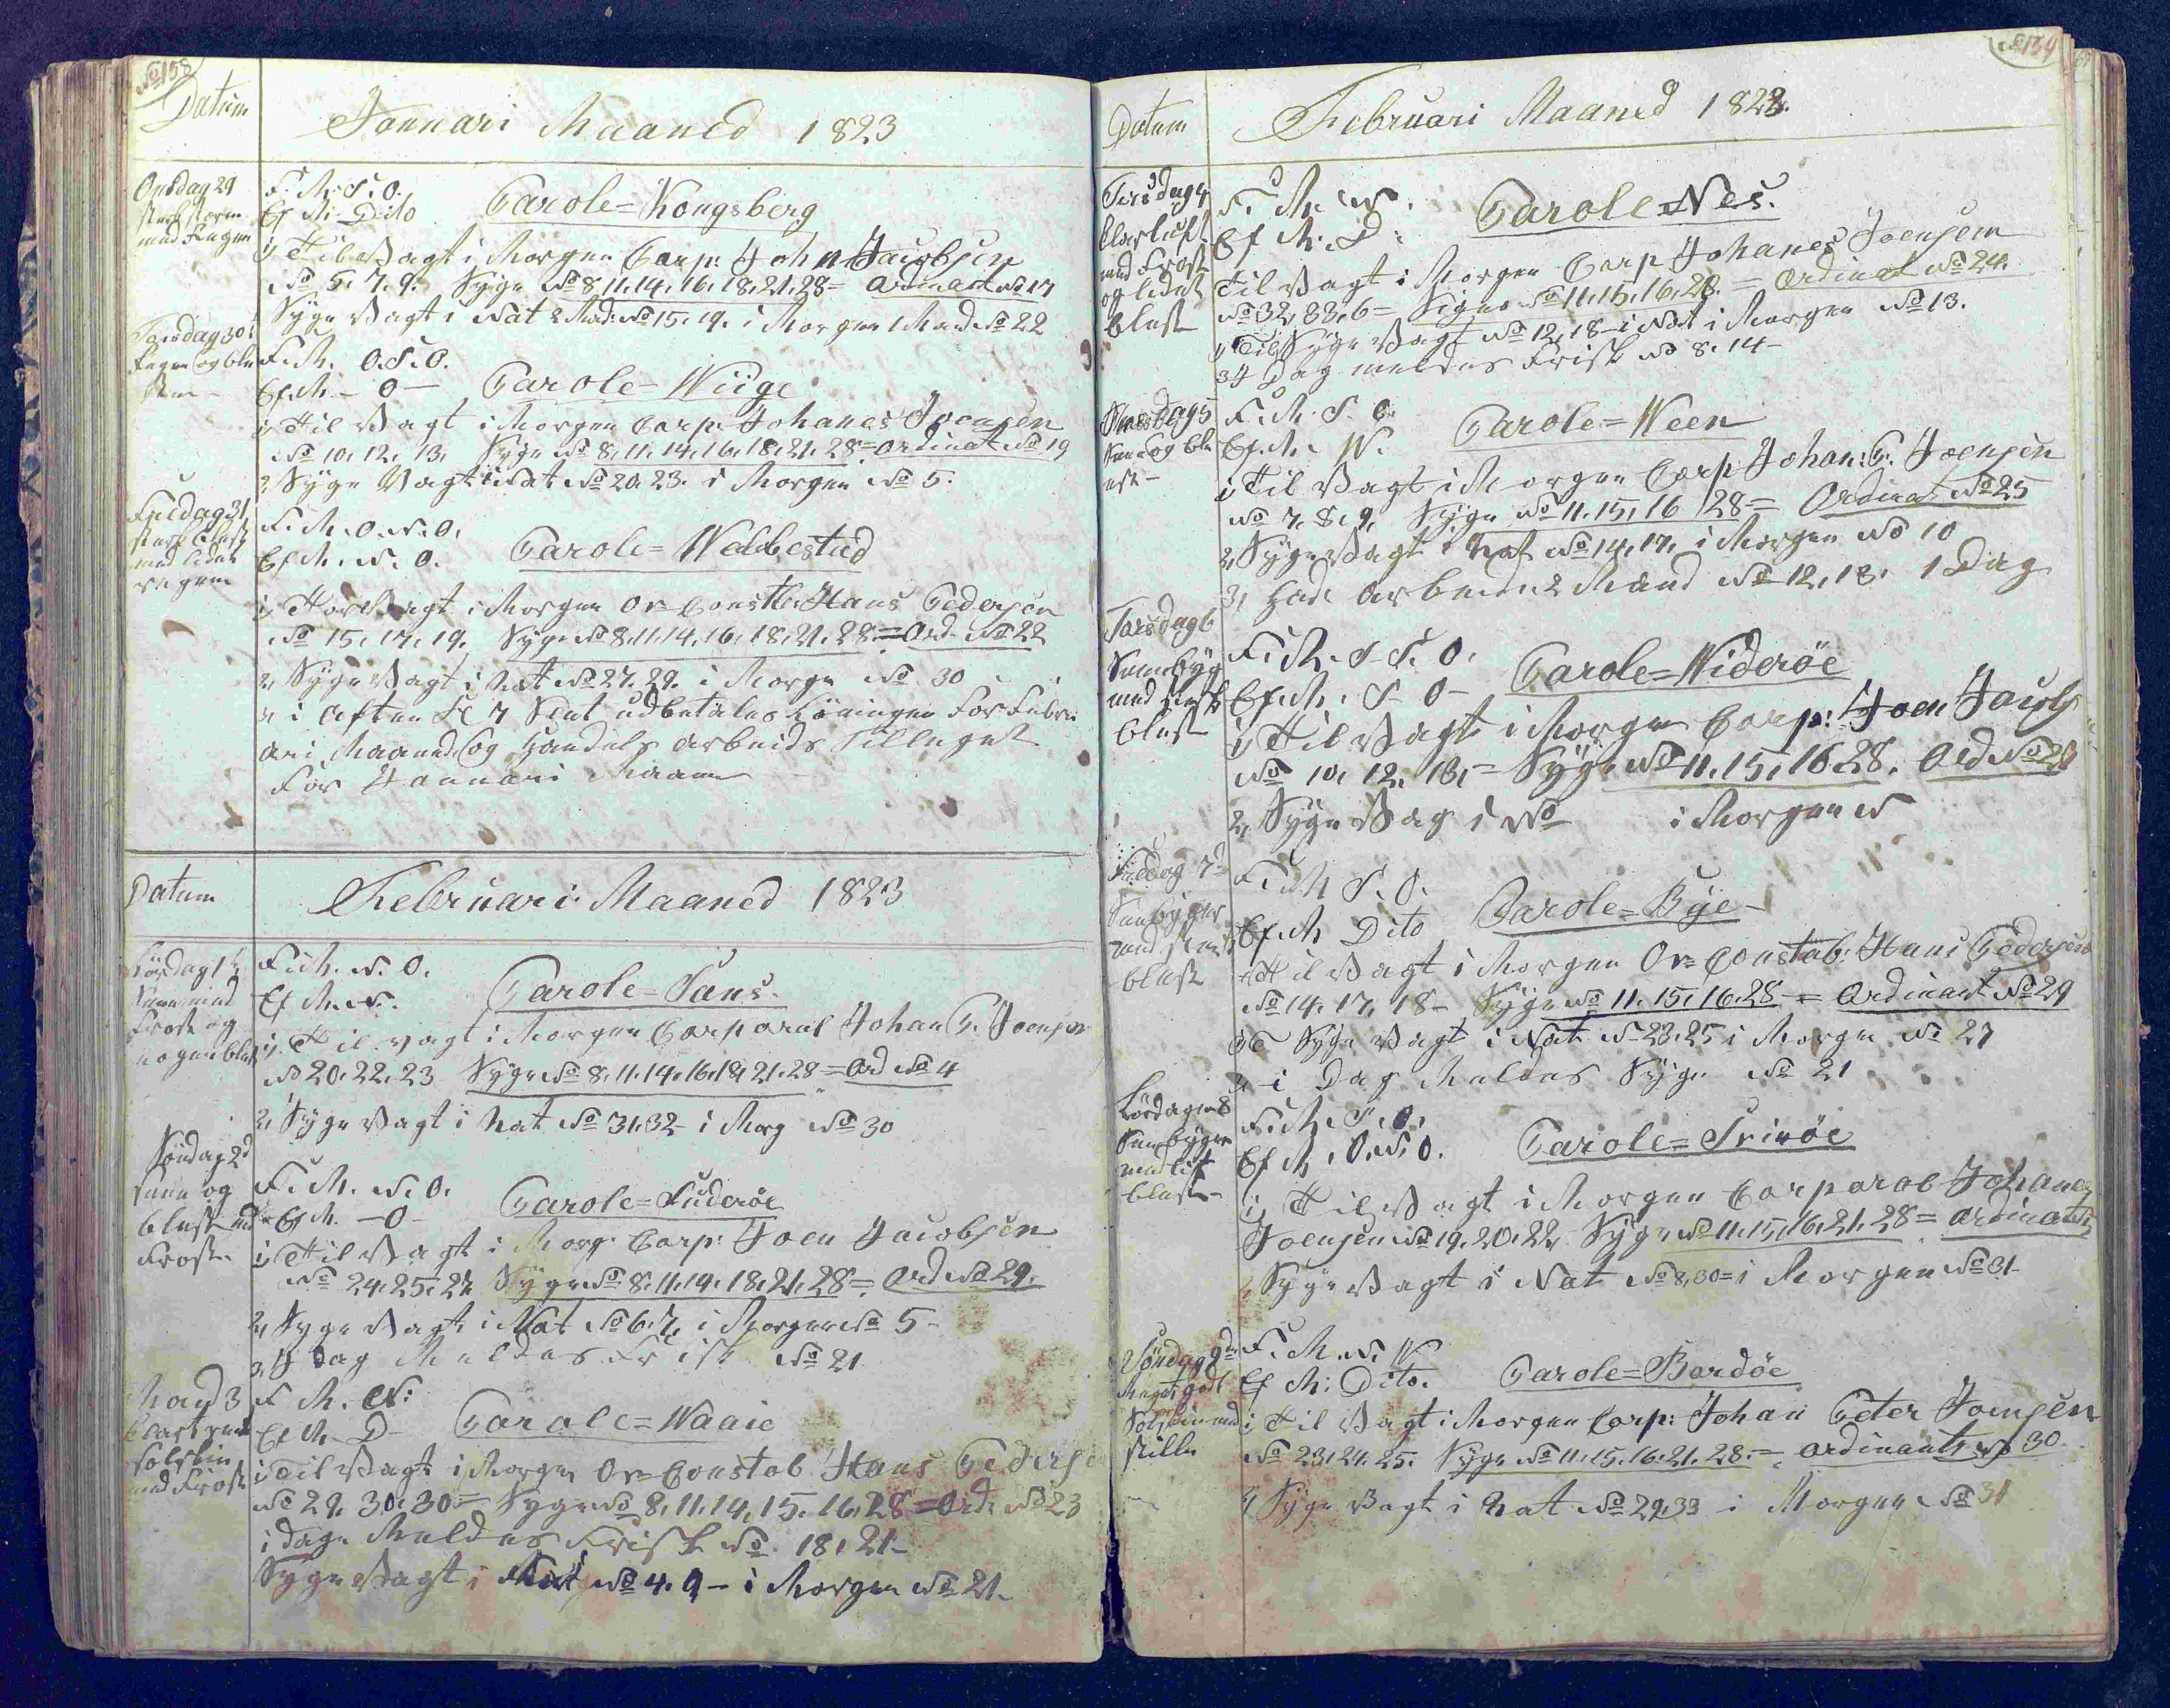 No 158
Datum
Januari Maaned 1823
Onsdag 29
sterk storm
med Regen
F. M. S. O.
Ef M. Dito
Parole = Kongsberg
1, Til Vagt i Morgen Corp: John Jacobsen
No 5. 7. 9. Syge No 8. 11. 14. 16. 18. 21. 28 = Ordinant No 17
Syge Vagt i Nat 2 Mad: No 15. 19. i Morgen 1 Mad No 22
Torsdag 30
Regen og ble
F. M. O. S. O.
Ef. M. - O -
Parole = Wiige
1, Til Vagt i Morgen Corp. Johanes Joensen
No 10. 12. 13. Syge No 8. 11. 14. 16. 18. 21. 28 = Ordinat No 19
2, Syge Vagt i Nat No 20. 23. i Morgen No 5.
Freidag 31
sterk blest
med lidet
regen
F. M. O. N. O.
Ef M. N. O.
Parole = Webbestad
1, For Vagt i Morgen Or= Constb: Hans Pedersen
No 15. 17. 19. Syge No 8. 11. 14. 16. 18. 21. 28. = Ord No 22
2, Syge Vagt i Nat No 27. 29. i Morge No 30
3, i Aften Kl 7 Slet udbetales Lønningen For Febru
ari Maaned og Handels Arbeids Tilleget
For Januari Maaned
Datum
Februari Maaned 1823
Lørdag 1
Snee med
Frost og
nogen blest
F. M. N. O.
Ef M. N.
Parole = Sans.
1, Til vagt i Morgen Corporal Johan P. Joensen
No 20. 22. 23 Syge No 8. 11. 14. 16. 18. 21. 28 = Ord No 4
2, Syge Vagt i Nat No 31. 32 - i Morg No 30
Søndag 2d
snee og
blest med
Frost
F. M. N. O.
Ef M. - O -
Parole = Suderöe
1, Til Vagt i Morg: Corp: Joen Jacobsen
No 24. 25. 27. Syge No 8. 11. 14. 18. 21. 28 = Ord No 29.
2, Syge Vagt i Nat No 6. 7. i Morgen No 5 -
3, I Dag Meldes Frisk No 21
Mand 3
klart med
solskin
med Frost
F M. N:
Ef M - D -
Parole = Waaie
1, Til Vagt i Morgen Or= Constab Hans Pederse
No 29. 30. 30 = Syge No 8. 11. 14. 15. 16. 28 = Ord: No 23
i dage Meldes Frisk No 18. 21 -
Syge Vagt i Nat No 4. 9 - i Morgen No 21 -
No 159
Datum
Februari Maaned 1823.
Tirsdag 4
klar luft
med Frost
og lidet
blest
F. M. N.
Ef M. D:
Parole Nes.
Til Vagt i Morgen Corp Johanes Joensen
No 32. 33. 6 = Siger No 11. 15. 16. 28 = Ordinat No 24.
1, Til Syge Vagt No 12. 18 - i Nat i Morgen No 13.
3, I Dag meldes Frisk No 8. 14 -
Onsdag 5
Snee og ble
est -
F. M. S. O.
Ef. M. W.
Parole = Ween
1, Til Vagt i Morgen Corp Johan: P. Joensen
No 7. 8. 9. Syge No 11. 15. 16 28 = Ordinat No 25
2, Syge Vagt i Nat No 14. 17. i Morgen No 10
3, Hade Arbeide 2 Mand No 12. 18. 1 Dag
Torsdag 6
Sneebyg
med sterk
blest
F. M. S - S. O.
Ef. M. S O -
Parole = Widerøe
1, Til Vagt i Morgen Corp: Joen Jacobs
No 10. 12. 18. = Syge No 11. 15. 16 28. Ord No 29
2, Syge Vag i No i Morgen N
Fredag 7d
Sneebyger
med sterk
blest
F. M S. O.
Ef. M Dito
Parole = Bye -
Til Vagt i Morgen Or= Constab: Hans Pedersen
No 14. 17. 18 - Syge No 11. 15. 16. 28 - = Ordinant No 29
Syge Vagt i Nat No 23. 25 i Morgen No 27
3, - i Dag Meldes Syge No 21
Lørdagen 8
Sneebyger
med lit
blest -
F. M. S. O.
Ef M. O. N. O.
Parole = Srinöe
1, Til Vagt i Morgen Corporal Johanes
Joensen No 19. 20. 22 Syge No 11. 15. 16. 21. 28 = Ordinant
2, Syge Vagt i Nat No 8. 30 = i Morgen No 31 -
Søndag 9de
Meget godt
Solskin med
stille
F. M. N. W
Ef M: Dito.
Parole = Bordöe
1, Til Vagt i Morgen Corp: Johan Peter Joensen
No 23. 24. 25. Syge No 11. 15. 16. 21. 28. = Ordinants No 30
2, Syge Vagt i Nat No 29. 33 i Morgen No 31